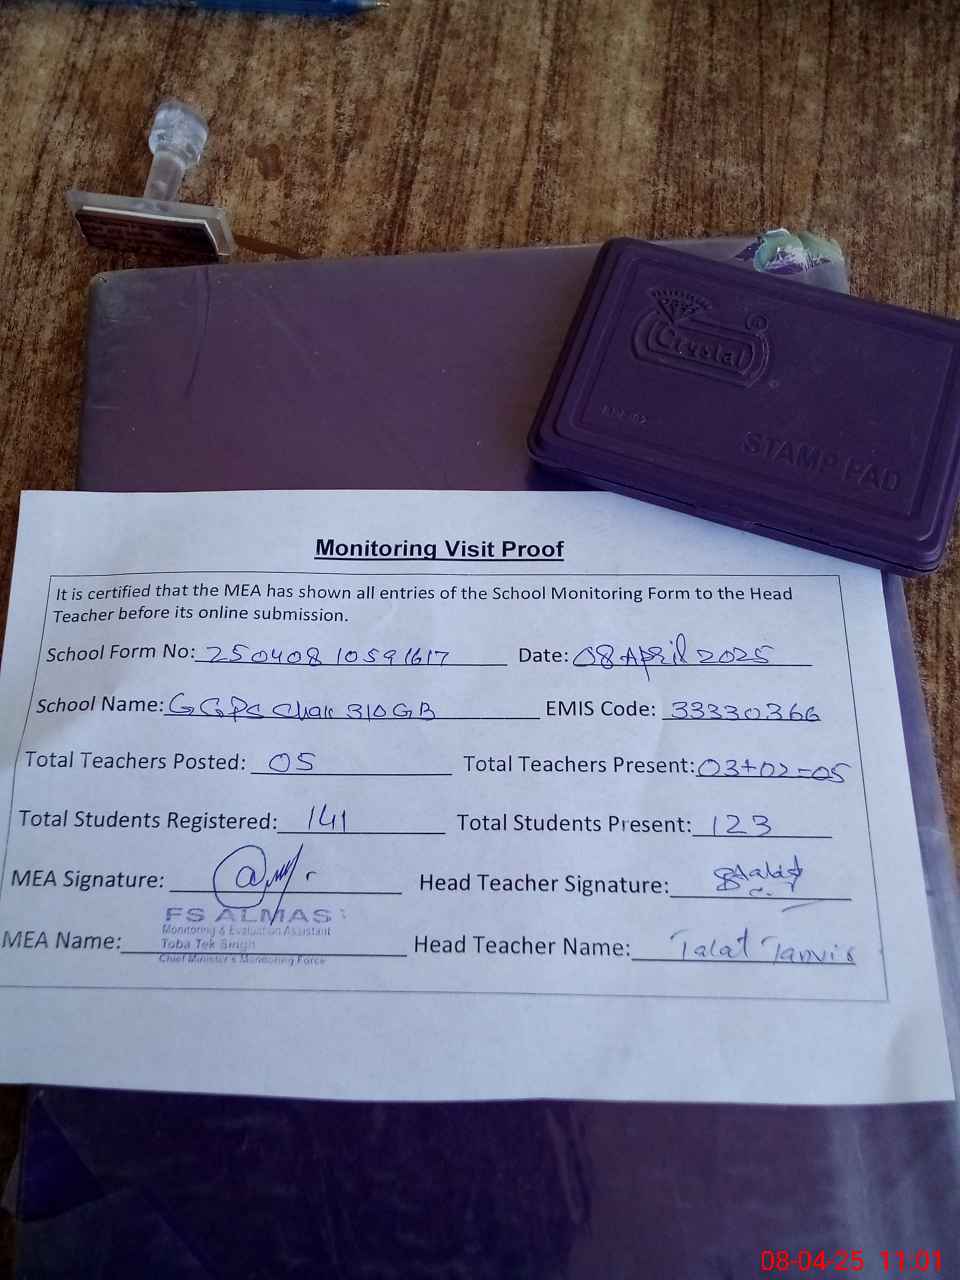 Crystal
STAMP PAD
Monitoring Visit Proof
It is certified that the MEA has shown all entries of the School Monitoring Form to the Head
Teacher before its online submission.
School Form No: 25040810591617 Date: 08 April 2025
School Name: GGPS Chak 310 GB EMIS Code: 33330366
Total Teachers Posted: 05 Total Teachers Present: 03+02=05
Total Students Registered: 141 Total Students Present: 123
MEA Signature: Head Teacher Signature:
FS ALMAS
Monitoring & Evaluation Assistant
Toba Tek Singh
Chief Minister's Monitoring Force
MEA Name: Head Teacher Name: Talat Tanvir
08-04-25 11:01